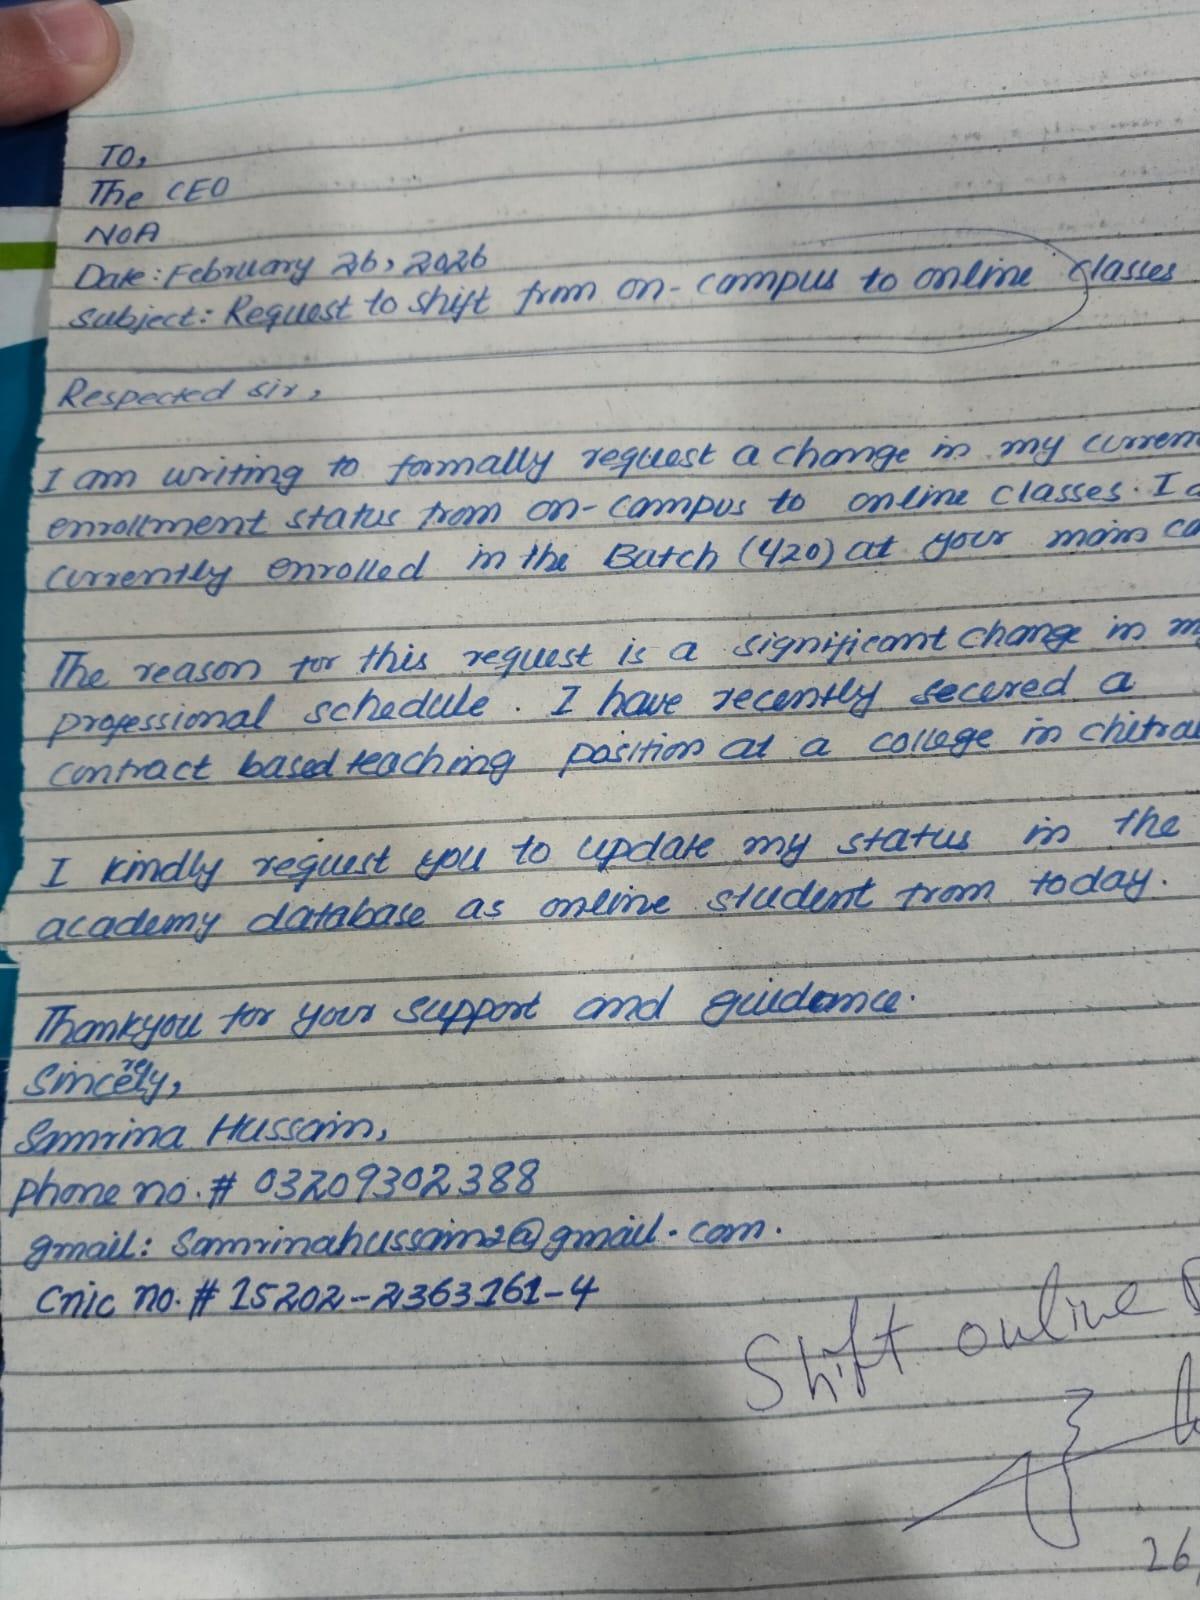 TO,
The CEO
NOA
Date: February 26, 2026
Subject: Request to shift from on-campus to online classes
Respected sir,
I am writing to formally request a change in my
enrollment status from on-campus to online classes. I
currently enrolled in the Batch (420) at your main
The reason for this request is a significant change in
professional schedule. I have recently secured a
contract based teaching position at a college in chitral
I kindly request you to update my status in the
academy database as online student from today.
Thankyou for your support and guidance.
Sincerely,
Samrina Hussain,
phone no. # 03209302388
gmail: Samrinahussain2@gmail.com.
Cnic no. # 15202-2363161-4
Shift online
26